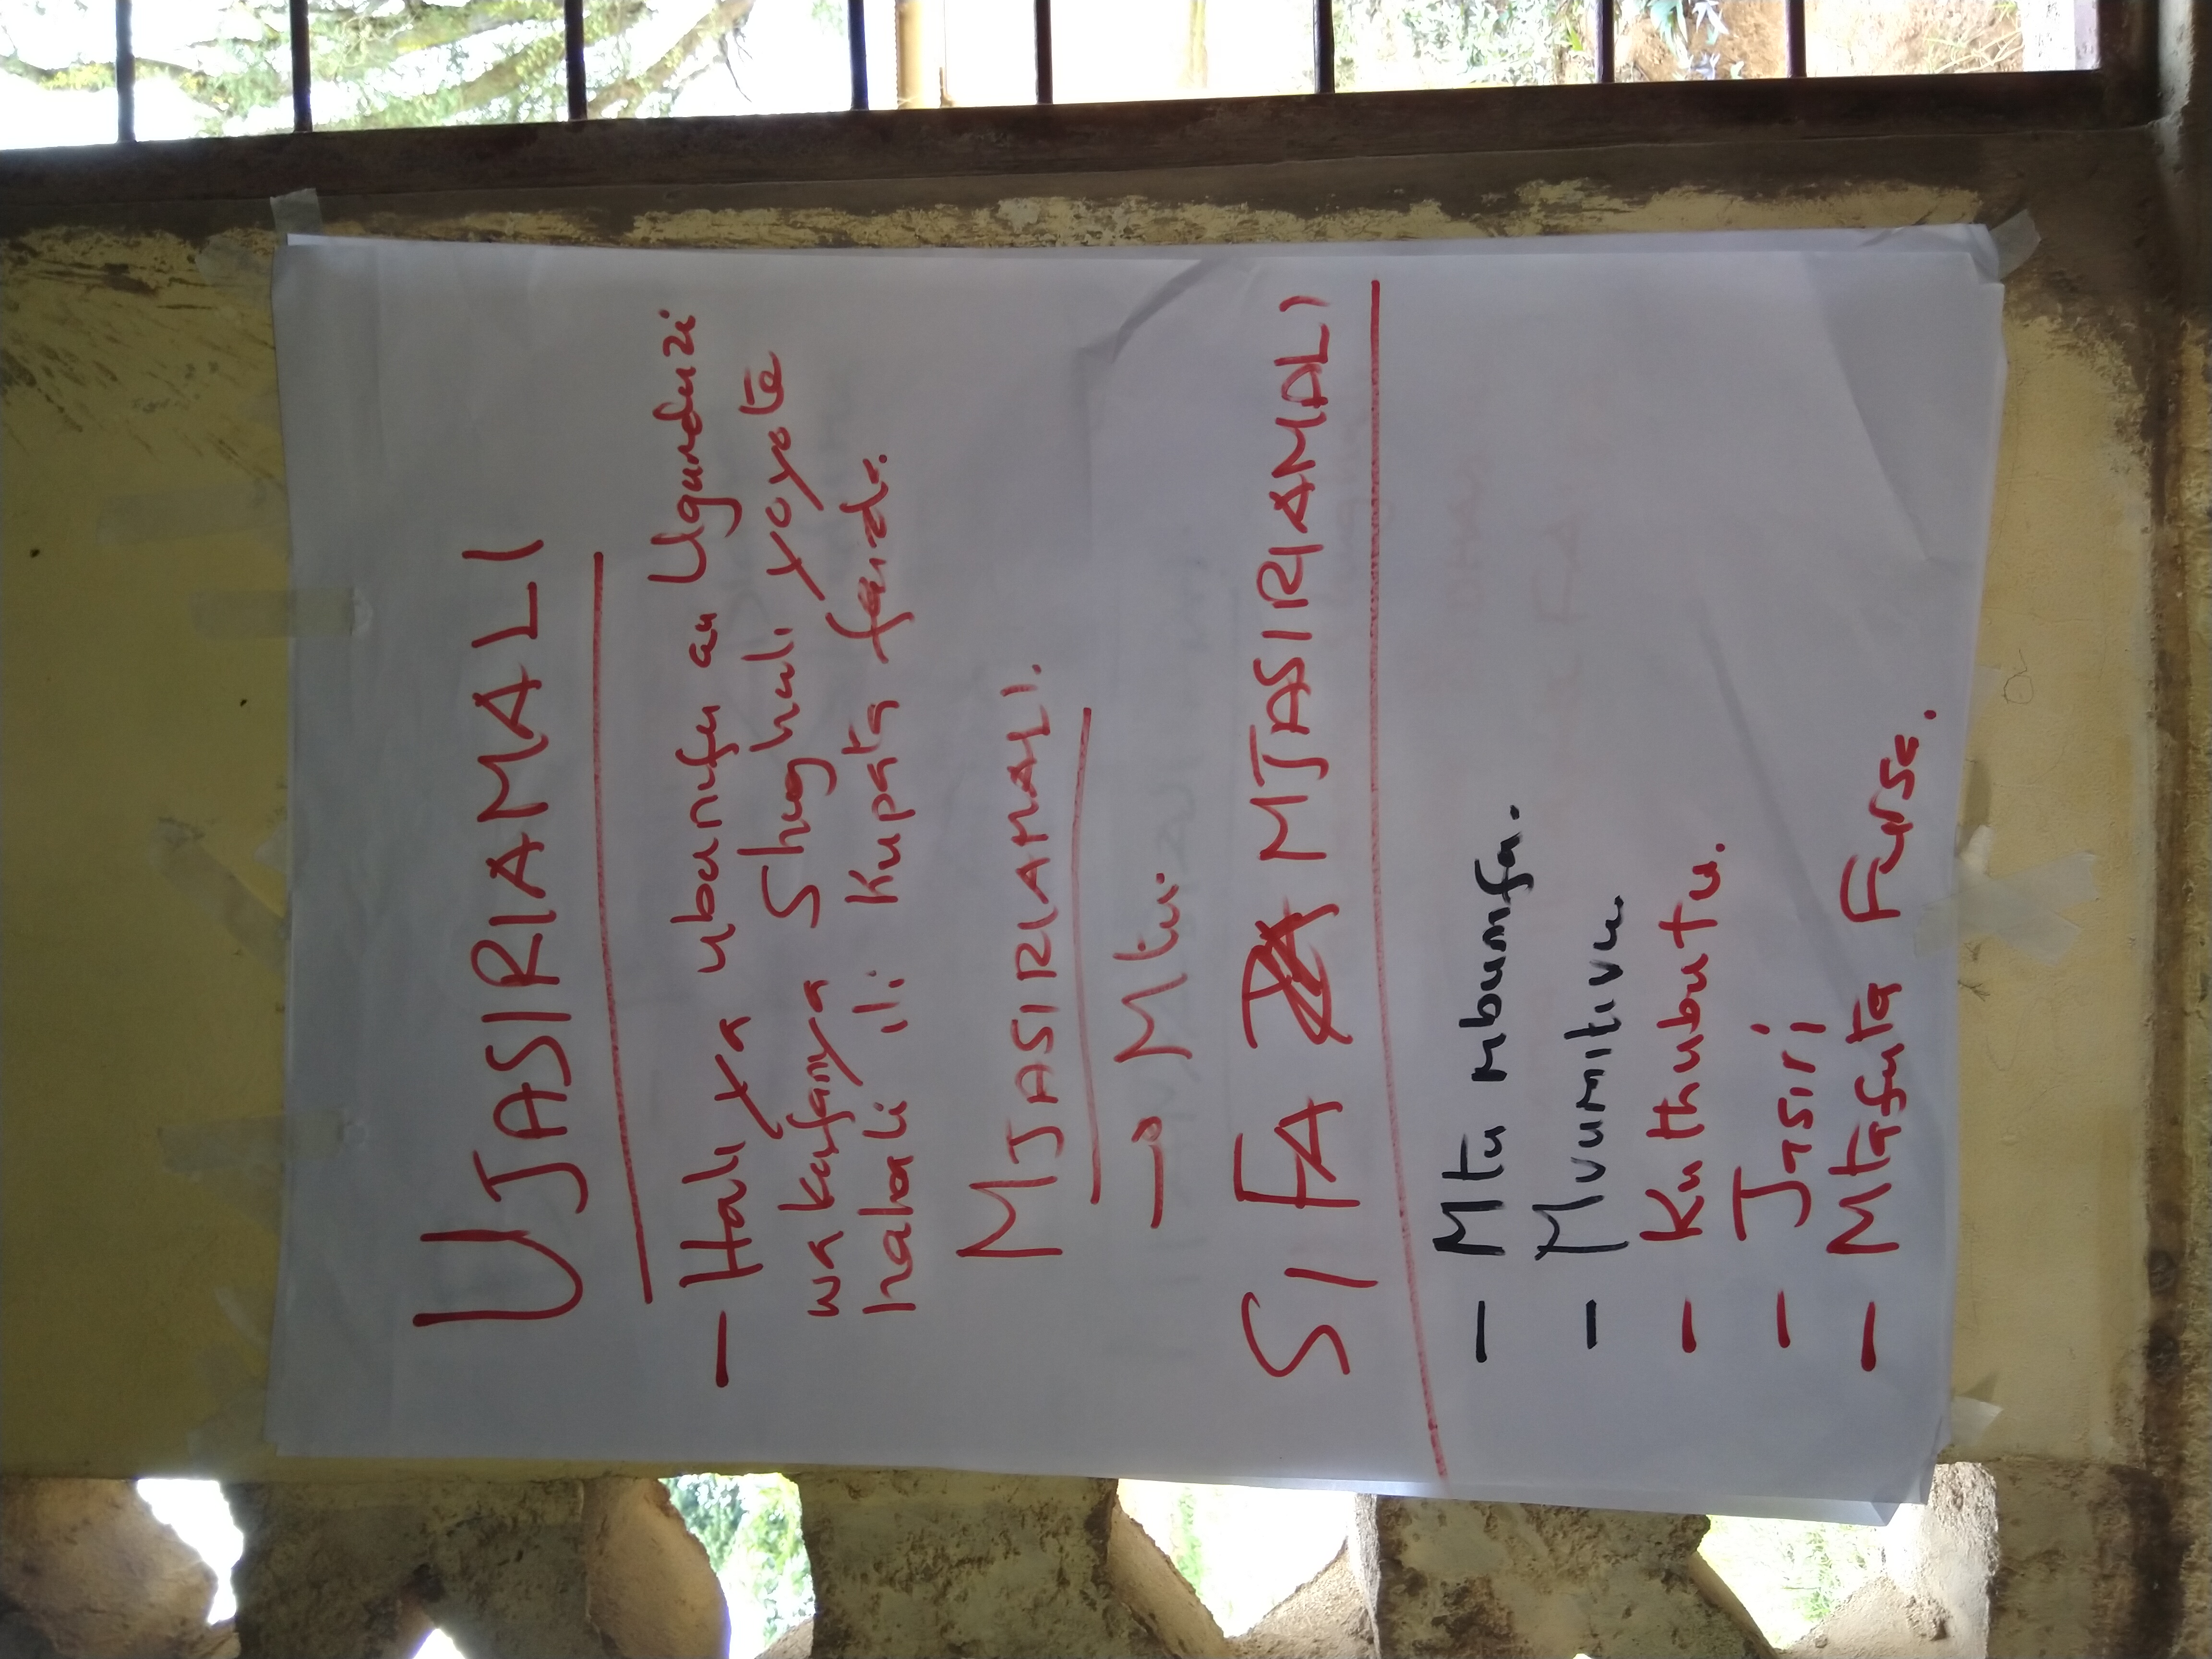 UJASIRIAMALI
- Hali ya ubunifu au Ugunduzi
wa kufanya Shughuli yoyote
halali ili Kupata faida.
MJASIRIAMALI.
→ Mtu.
SIFA ZA MJASIRIAMALI
- Mtu mbunifu.
- Mvumilivu
- Kuthubutu.
- Jasiri
- Mtafuta Fursa.